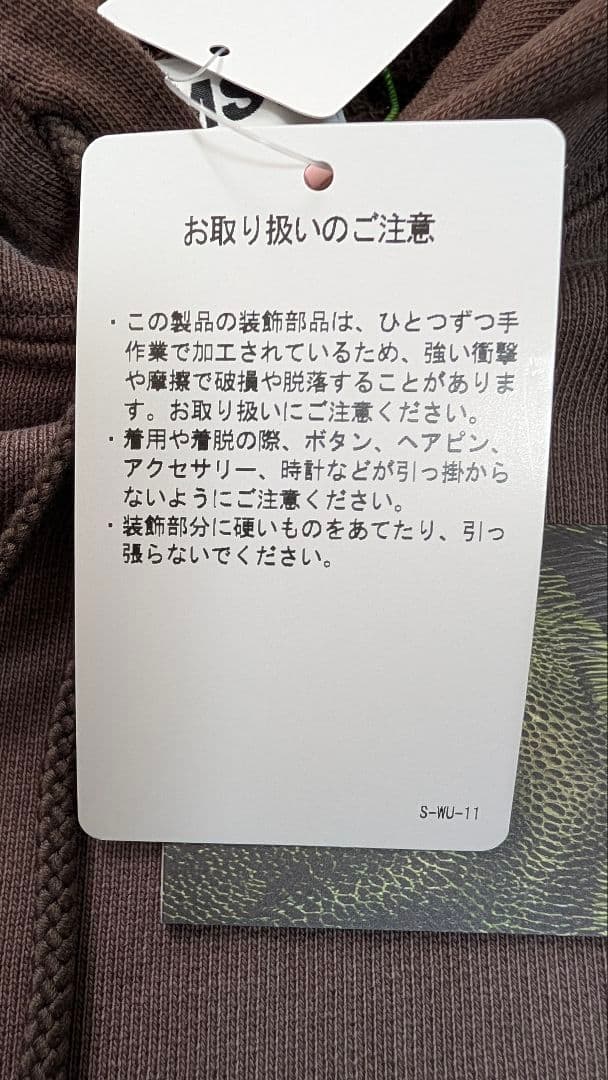 お取り扱いのご注意
・この製品の装飾部品は、ひとつずつ手
作業で加工されているため、強い衝撃
や摩擦で破損や脱落することがありま
す。お取り扱いにご注意ください。
・着用や着脱の際、ボタン、ヘアピン、
アクセサリー、時計などが引っ掛から
ないようにご注意ください。
・装飾部分に硬いものをあてたり、引っ
張らないでください。
S-WU-11